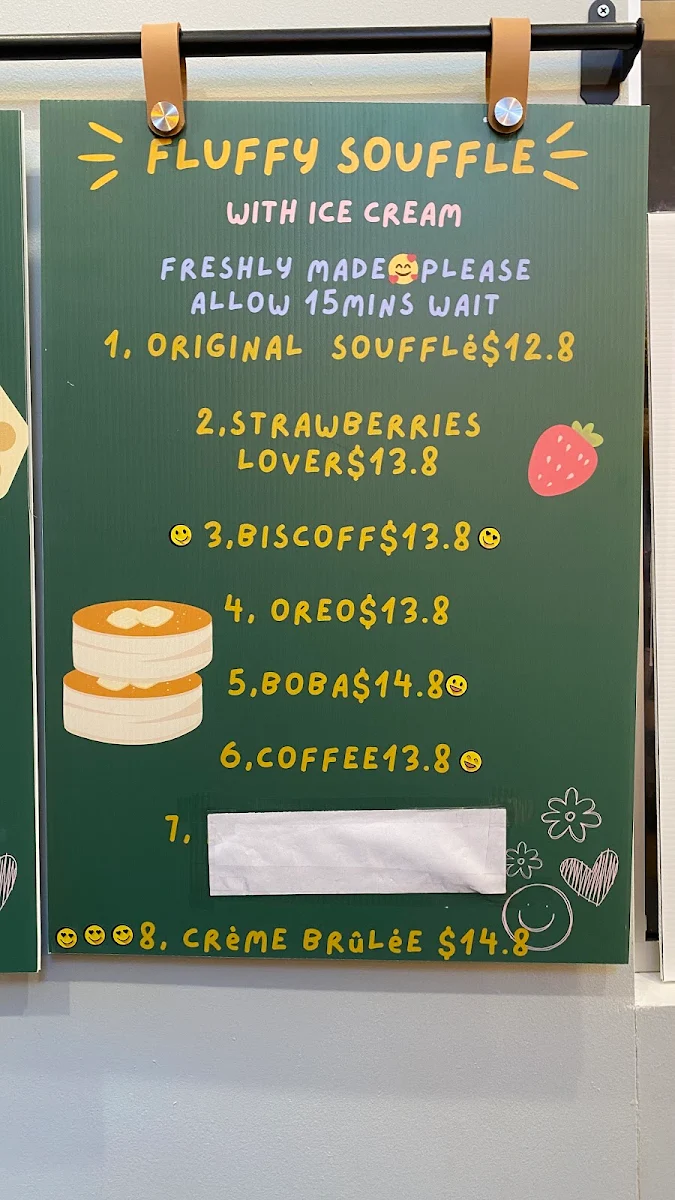 FLUFFY SOUFFLE
WITH ICE CREAM
FRESHLY MADE🥰PLEASE
ALLOW 15MINS WAIT
1, ORIGINAL SOUFFLė$12.8
2,STRAWBERRIES
LOVER$13.8
3,BISCOFF$13.8
4, OREO$13.8
5,BOBA$14.8
6,COFFEE13.8
7,
8, CRėME BRûLėE $14.8